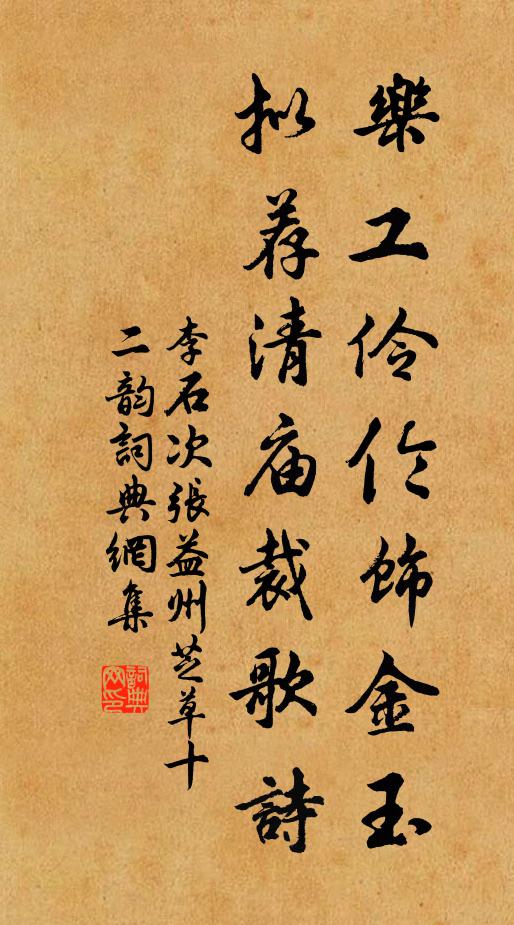 樂工伶伦飾金玉
拟荐清庙裁歌詩
李石次張益州芝草十
二韵詞典網集
詞典
网印